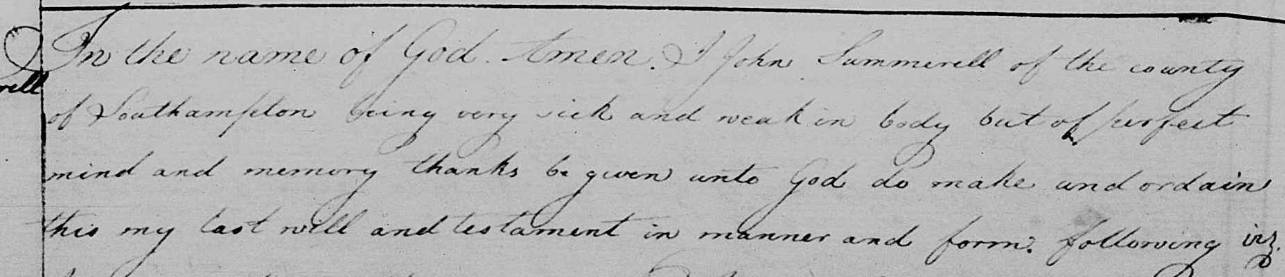 rell
In the name of God Amen. I John Summerell of the county
of Southampton being very sick and weak in body but of perfect
mind and memory thanks be given unto God do make and ordain
this my last will and testament in manner and form. following viz.